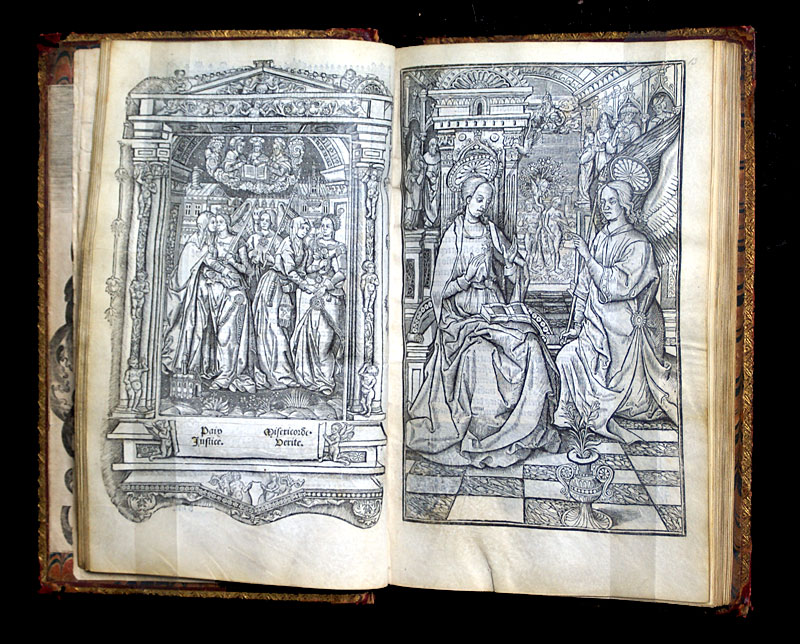 Paix Misericorde.
Justice. Verite.